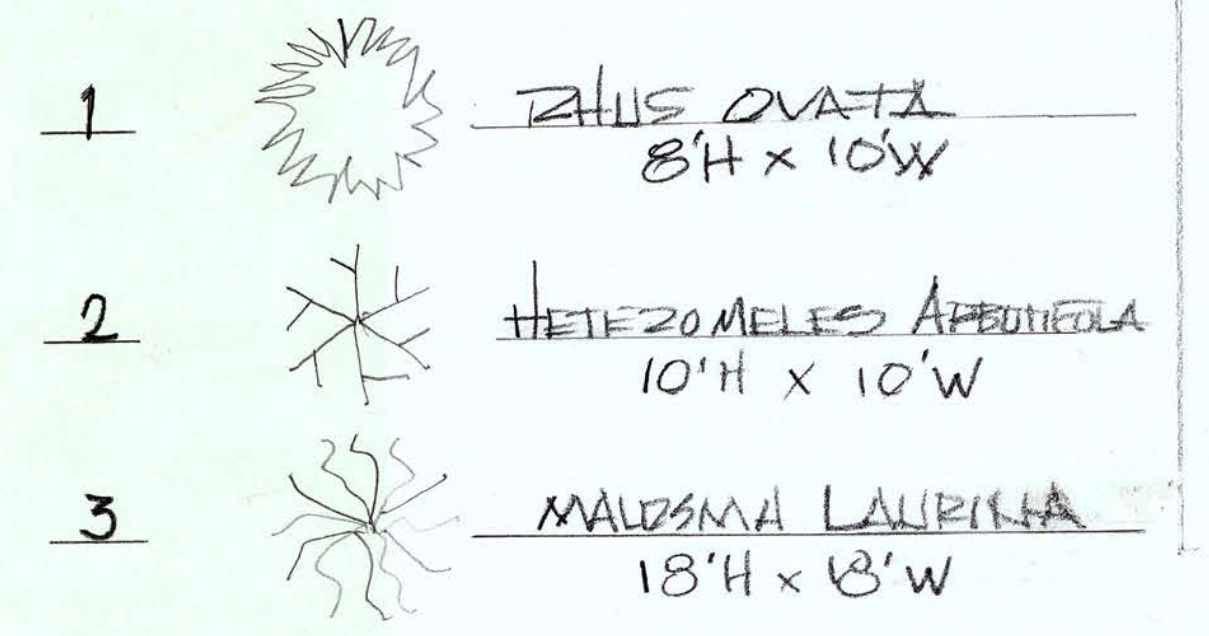 1
RHUS OVATA
8'H x 10'W
2
HETEROMELES ARBUTIFOLA
10'H x 10'W
3
MALOSMA LAURINA
18'H x 18'W